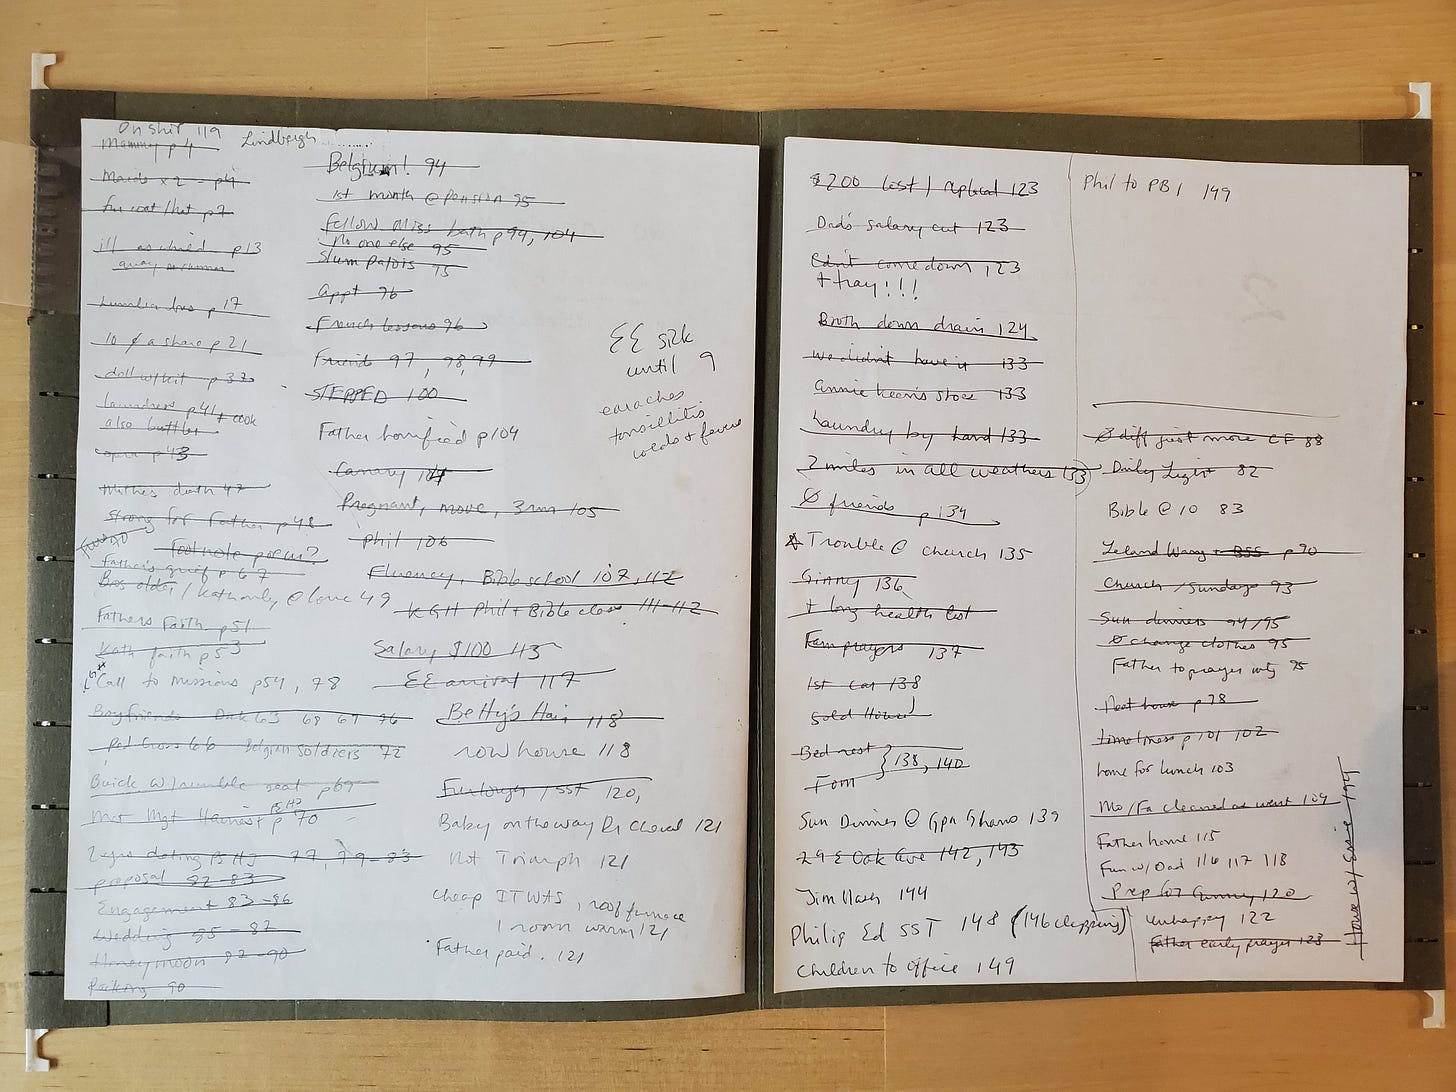 On ship 119
Lindbergh
Mammy p4
Maids x 2 - p4
fur coat/hat p7
ill as child p13
p17
10 ¢ a share p21
doll w/kit p 37
laundress p41 + cook
also butler
opera p43
Mother's death 47
Strong for Father p48
Footnote poem?
Father's grief p 67
Bros older / Kath only @ love 49
Fathers Faith p51
Kath faith p53
Call to missions p54, 78
Boyfriends Dick 63 68 69 96
Red Cross 66 Belgian soldiers 72
Buick w/rumble seat p69
Met Mgt Haines p 70
dating PEH 77, 79-83
proposal 82-83
Engagement 83-86
Wedding 85-87
Honeymoon 87-90
Packing 90
Belgium! 94
1st month @ pension 95
Fellow Miss bath p94, 104
No one else 95
Slum patois 95
Appt 96
French lessons 96
Friend 97, 98, 99
STEPPED 100
Father horrified p104
Canary 104
Pregnant, move, 3rm 105
Phil 106
Fluency, Bible school 107, 112
KGH Phil + Bible class 111-112
Salary $100 113
EE arrival 117
Betty's Hair 118
row house 118
Furlough / SST 120,
Baby on the way 121
Not Triumph 121
cheap ITWAS, roof furnace
1 room warm 121
Father paid. 121
EE sick
until 9
earaches
tonsillitis
colds + fevers
$200 lost / replaced 123
Dad's salary cut 123
Didn't come down 123
+ tray!!!
Broth down drain 124
We didn't have it 133
Annie Keen's store 133
Laundry by hand 133
2 miles in all weathers 133
Ø friends p 134
Trouble @ church 135
Ginny 136
+ long health list
Fam prayers 137
1st car 138
Sold House
Bed rest } 138, 140
Tom
Sun Dinner @ Gpa 139
29 E Oak Ave 142, 143
Jim 144
Philip Ed SST 148 (146 clipping)
Children to office 149
Phil to PBI 149
Ø diff just more CF 88
Daily Light 82
Bible @ 10 83
Leland Wang + BSS p90
Church / Sundays 93
Sun dinners 94/95
Ø change clothes 95
Father to prayer mtg 95
Neat house p78
timeliness p 101 102
home for lunch 103
Mo/Fa cleaned as went 104
Father home 115
Fun w/ Dad 116 117 118
Prep for Ginny 120
Unhappy 122
Father early prayer 123